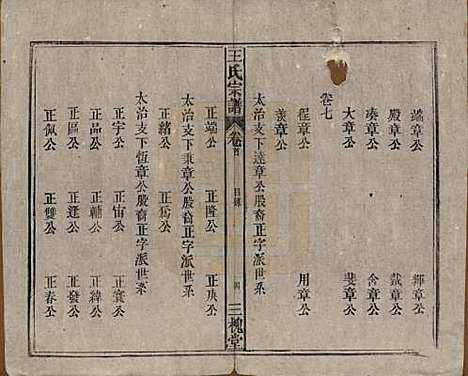 端章公 輝章公
殿章公 戴章公
奏章公 含章公
大章公 斐章公
卷七
程章公 用章公
羨章公
太治支下達章公股裔正字派世系
正端公 正隆公 正庚公
王氏宗譜 卷首 目錄 三槐堂
正緒公 正篤公
太治支下秉章公股裔正字派世系
太治支下恆章公股裔正字派世系
正宇公 正宙公 正寰公
正品公 正輔公 正緯公
正區公 正逢公 正發公
正佩公 正雙公 正春公